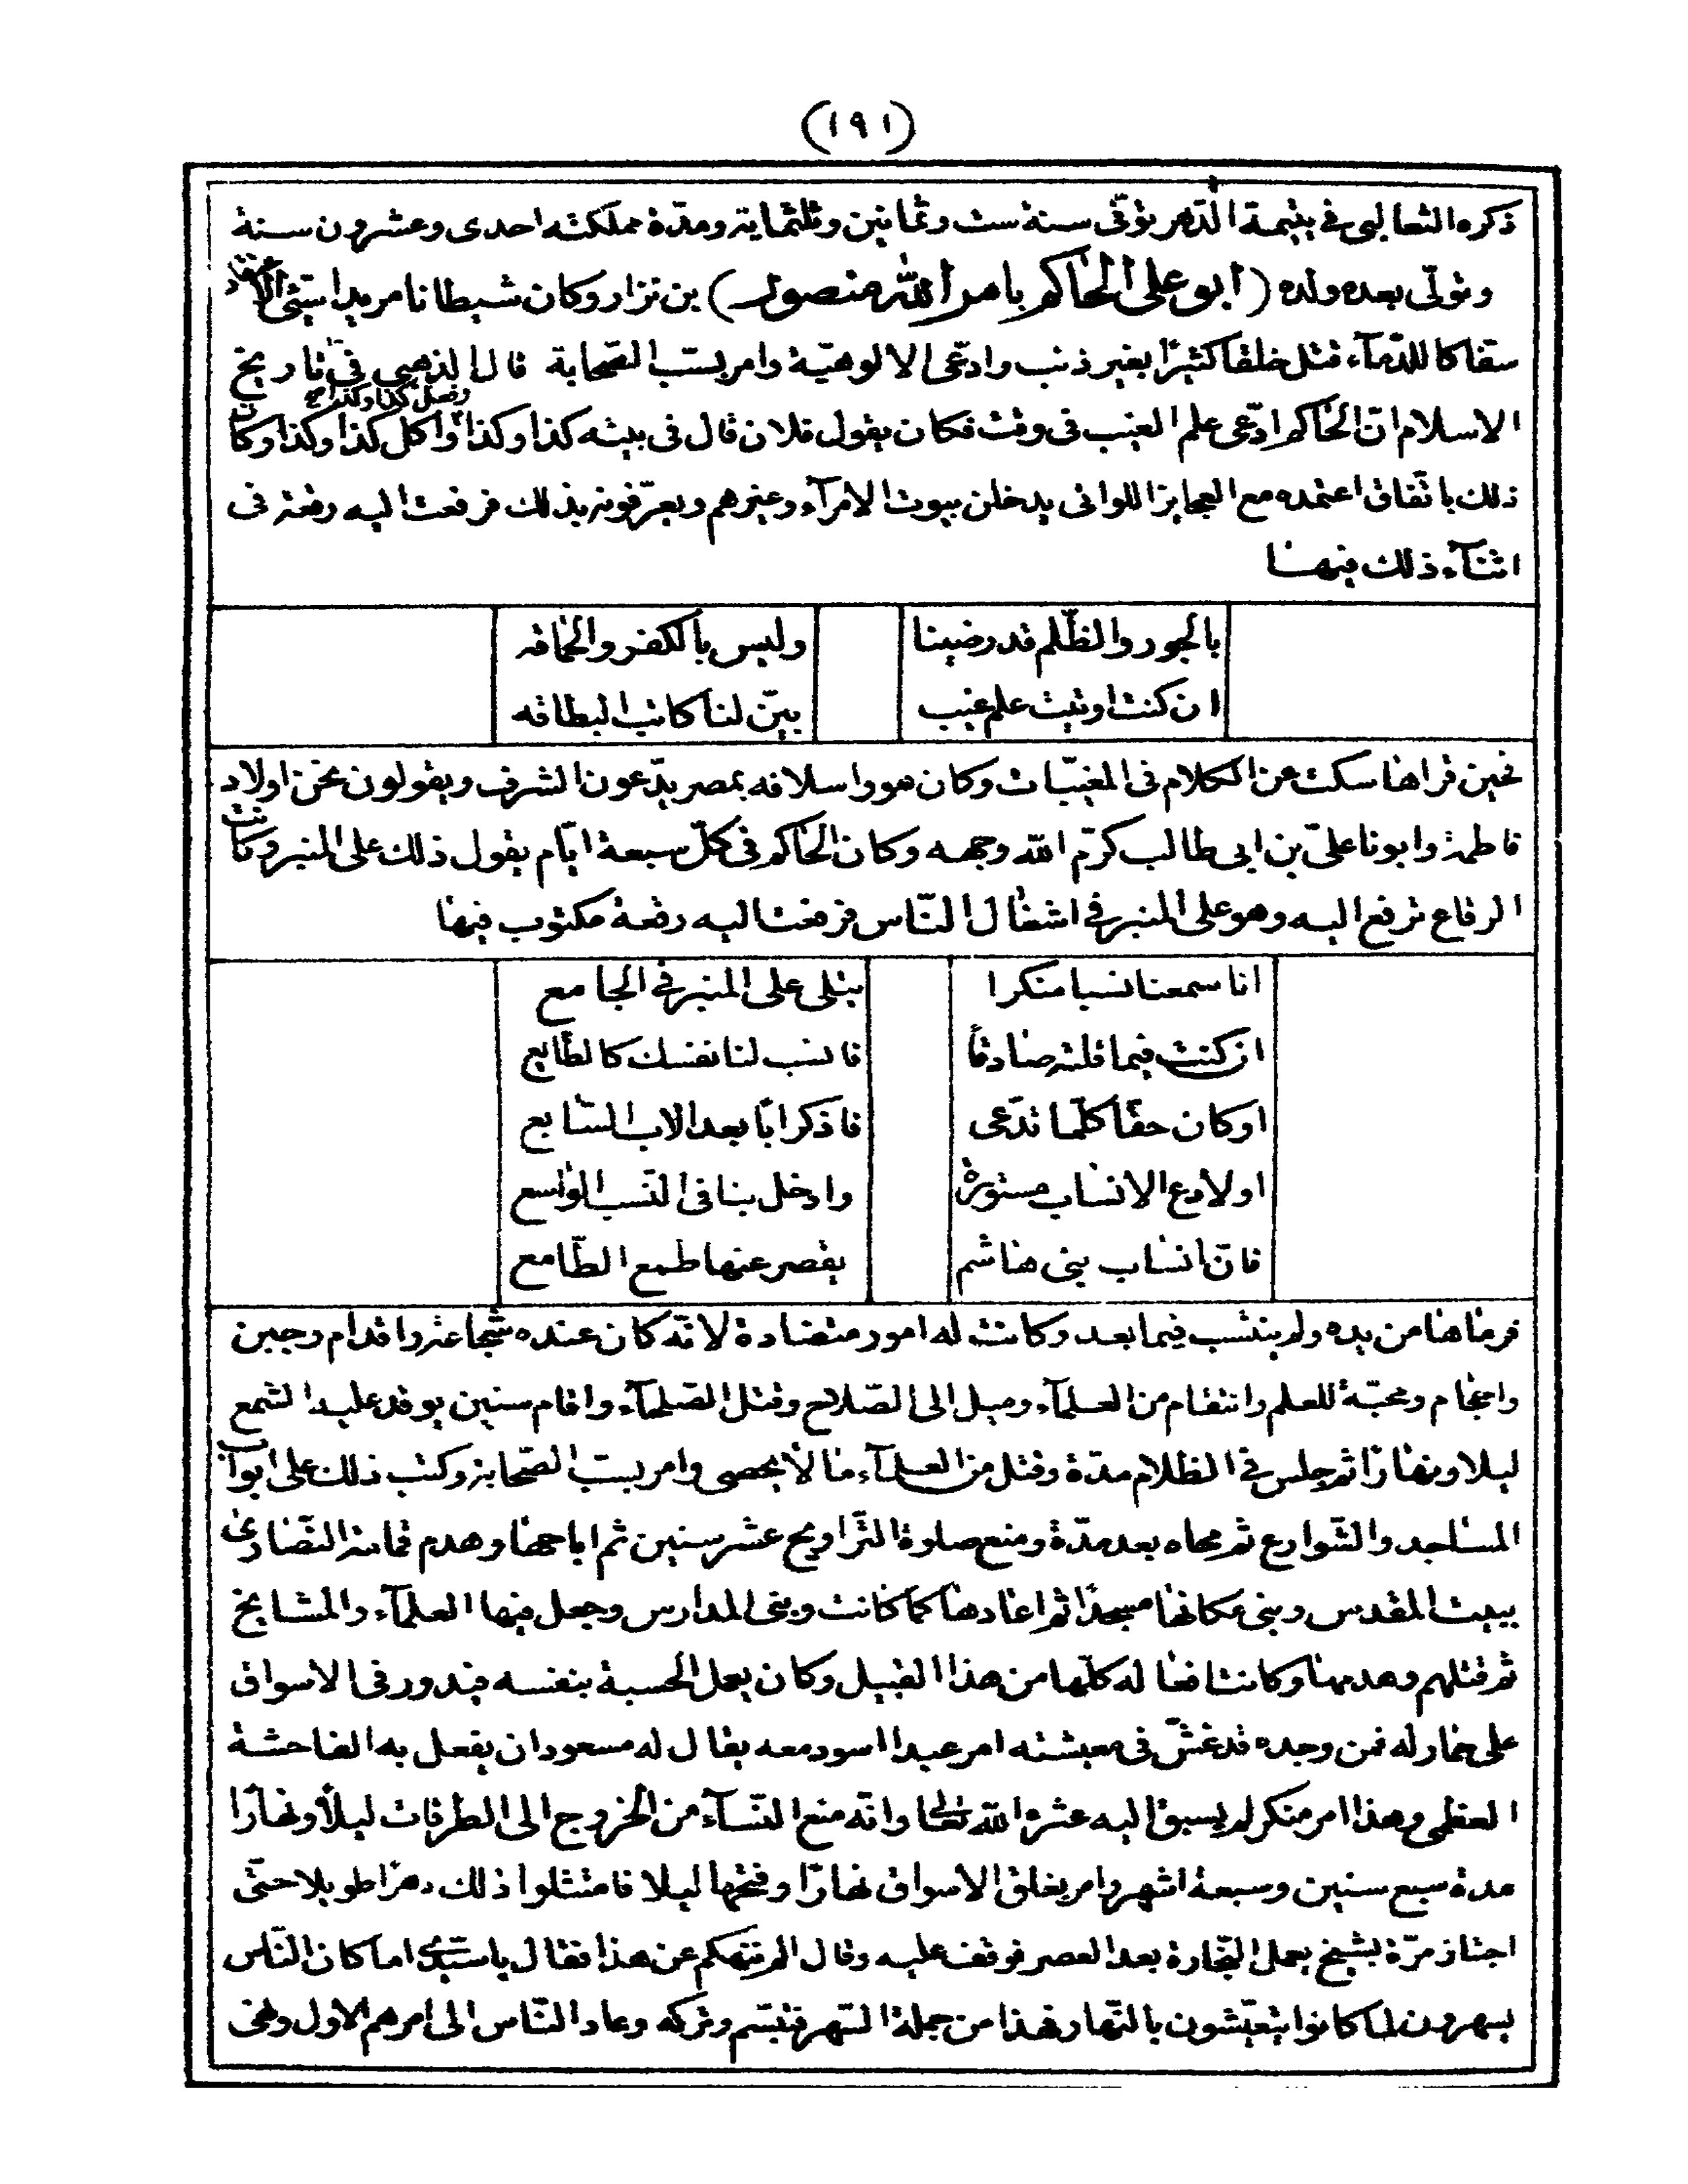 (١٩١)
ذكره الثعالبى فى يتيمة الدّهر توفّى سنة ست وثمانين وثلثماية ومدّة مملكته احدى وعشرون سنة
وتولّى بعده ولده (ابو على الحاكم بامر الله منصور) بن نزار وكان شيطانا مريدا سيّئ الاعتقاد
سفّاكا للدّمآء قتل خلقا كثيرًا بغير ذنب وادّعى الالوهيّة وامر بسبّ الصّحابة قال الذهبى فى تاريخ
الاسلام انّ الحاكم ادّعى علم الغيب فى وقت فكان يقول فلان قال فى بيته كذا وكذا وفعل كذا وكذا واكل كذا وكذا وكان
ذلك باتّفاق اعتمده مع العجايز اللواتى يدخلن بيوت الامرآء وغيرهم ويعرّفونه بذلك فرفعت اليه رقعة فى
اثنآء ذلك فيها
بالجور والظّلم قد رضينا وليس بالكفر والحماقه
ان كنت اوتيت علم غيب بيّن لنا كاتب البطاقه
فحين قراها سكت عن الكلام فى المغيّبات وكان هو واسلافه بمصر يدّعون الشرف ويقولون نحن اولاد
فاطمة وابونا علىّ بن ابى طالب كرّم الله وجهه وكان الحاكم فى كلّ سبعة ايّام يقول ذلك على المنبر وكانت
الرقاع ترفع اليه وهو على المنبر فى اشغال النّاس فرفعت اليه رقعة مكتوب فيها
انا سمعنا نسبا منكرا يتلى على المنبر فى الجامع
ان كنت فيما قلته صادقًا فانسب لنا نفسك كالطّايع
او كان حقّا كلّما تدّعى فاذكر ابًا بعد الاب السّابع
او لا دع الانساب مستورة وادخل بنا فى النّسب الواسع
فانّ انساب بنى هاشم يقصر عنها طمع الطّامع
فرماها من يده ولم ينتسب فيما بعد وكانت له امور متضادة لانّه كان عنده شجاعة واقدام وجبن
واحجام ومحبّة للعلم وانتقام من العلمآء وميل الى الصّلاح وقتل الصّلحآء واقام سنين يوقد عليه الشمع
ليلا ونهارًا ثم جلس فى الظلام مدّة وقتل من العلمآء ما لا يحصى وامر بسبّ الصّحابة وكتب ذلك على ابواب
المساجد والشّوارع ثم محاه بعد مدّة ومنع صلوة التّراويح عشر سنين ثم اباحها وهدم قمامة النّصارى
ببيت المقدس وبنى مكانها مسجدًا ثم اعادها كما كانت وبنى المدارس وجعل فيها العلمآء والمشايخ
ثم قتلهم وهدمها وكانت افعاله كلّها من هذا القبيل وكان يعمل الحسبة بنفسه فيدور فى الاسواق
على حمار له فمن وجده قد غشّ فى معيشته امر عبدا اسود معه يقال له مسعود ان يفعل به الفاحشة
العظمى وهذا امر منكر لم يسبق اليه عثره الله تعالى وانّه منع النّسآء من الخروج الى الطرقات ليلًا ونهارًا
مدة سبع سنين وسبعة اشهر وامر بغلق الاسواق نهارًا وفتحها ليلا فامتثلوا ذلك دهرًا طويلا حتّى
اجتاز مرّة بشيخ يعمل النّجارة بعد العصر فوقف عليه وقال الم ننهكم عن هذا فقال يا سيّدى اما كان النّاس
يسهرون لما كانوا يتعيّشون بالنّهار فهذا من جملة السّهر فتبسّم وتركه وعاد النّاس الى امرهم الاول ونحى